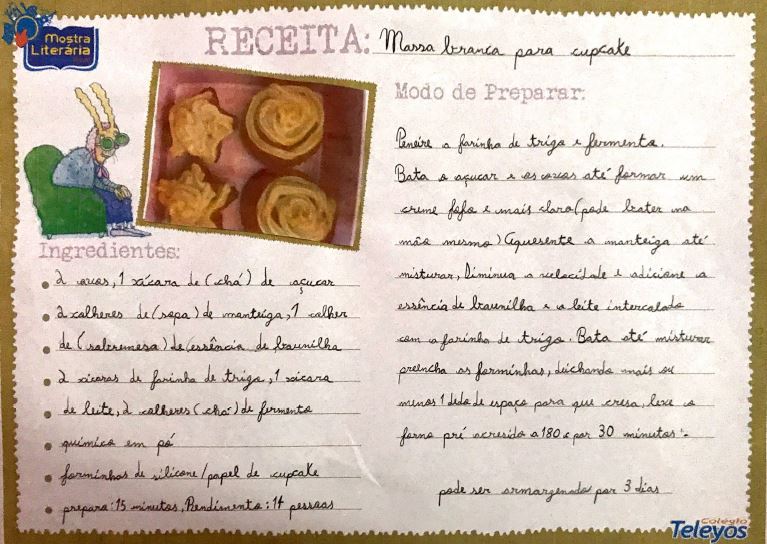 Mostra
Literária
RECEITA: Massa branca para cupcake
Ingredientes:
2 ovos, 1 xícara de (chá) de açucar
2 colheres de (sopa) de manteiga, 1 colher
de (sobremesa) de essência de baunilha
2 xícaras de farinha de trigo, 1 xícara
de leite, 2 colheres (chá) de fermento
químico em pó
forminhas de silicone/papel de cupcake
prepara: 15 minutos, Rendimento: 14 pessoas
Modo de Preparar:
Peneire a farinha de trigo e fermento.
Bata o açucar e os ovos até formar um
creme fofo e mais claro (pode bater na
mão mesmo) Aquesente a manteiga até
misturar, Diminua a velocidade e adicione a
essência de baunilha e o leite intercalado
com a farinha de trigo. Bata até misturar
preencha as forminhas, deichando mais ou
menos 1 dedo de espaço para que cresa, leve a
forno pré acresido a 180 c por 30 minutos
pode ser armargenado por 3 dias
Colégio
Teleyos